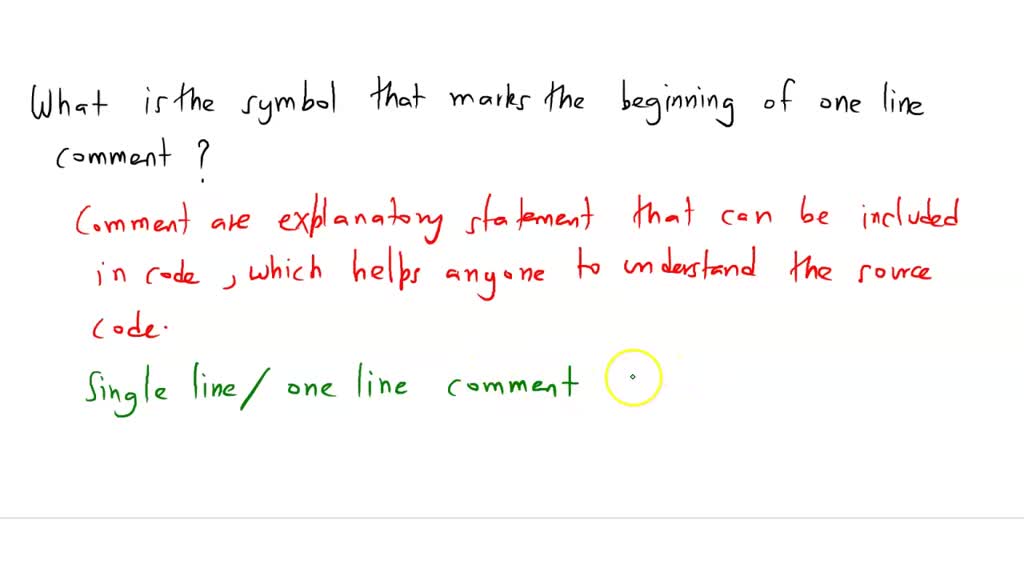 What is the symbol that marks the beginning of one line
comment ?
Comment are explanatory statement that can be included
in code , which helps anyone to understand the source
code.
Single line / one line comment